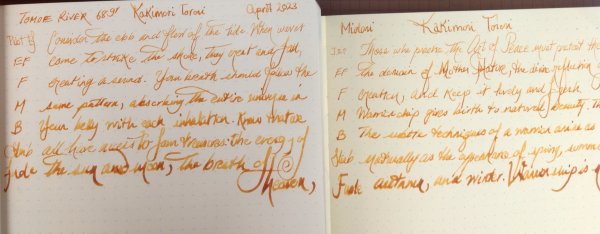 Tomoe River 68.9? Kakimori Toroii April 2023
Consider the ebb and flow of the tide. When waves
EF come to strike the shore, they crest and fall,
F creating a sound. Your breath should follow the
M same pattern, absorbing the entire universe in
B Your belly with each inhalation. Know that we
Stub all have access to four treasures: the energy of
Fude the sun and moon, the breath of
Heaven,
Midori Kakimori Toroii
Those who practice the Art of Peace must protect the
EF the domain of Mother Nature, the divine reflection of
F creation, and keep it lovely and fresh.
M Warriorship gives birth to natural beauty. The
B The subtle techniques of a warrior arise as
Stub naturally as the appearance of spring, summer
Fude autumn, and winter. Warriorship is